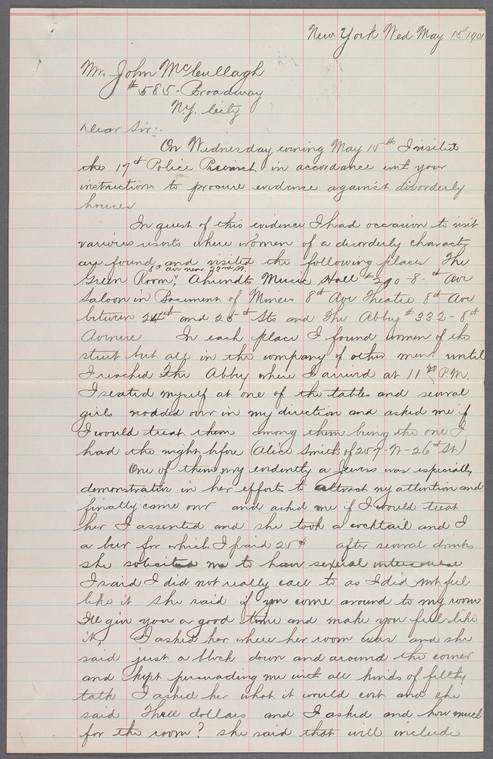 New York Wed May 15th 1901
Mr. John McCullagh
#585 - Broadway
N.Y. City
Dear Sir:-
On Wednesday evening May 15th I visited
the 17th Police Precinct in accordance with your
instructions to procure evidence against disorderly
houses
In quest of this evidence I had occasion to visit
various resorts where women of a disorderly character
are found, and visited the following places The
8th Ave near 23rd St.
Green Room, Music Hall #290-8th Ave
Saloon in Basement of Miners 8th Ave Theatre 8th Ave
between 24th and 25th Sts and The Abbey #332-8th
Avenue In each place I found women of the
street but all in the company of other men until
I reached The Abbey where I arrived at 11 P.M.
I seated myself at one of the tables and several
girls nodded over in my direction and asked me if
I would treat them among them being the one I
had the night before (Alice Smith of 257-W-26th St.)
One of them evidently a Jewess was especially
demonstrative in her efforts to attract my attention and
finally came over and asked me if I would treat
her I assented and she took a cocktail and I
a beer for which I paid 20¢ after several drinks
she solicited me to have sexual intercourse
I said I did not really care to as I did not feel
like it She said if you come around to my room
I'll give you a good time and make you feel like
it, I asked her where her room was and she
said just a block down and around the corner
and kept persuading me with all kinds of filthy
talk I asked her what it would cost and she
said Three dollars and I asked and how much
for the room? she said that will include